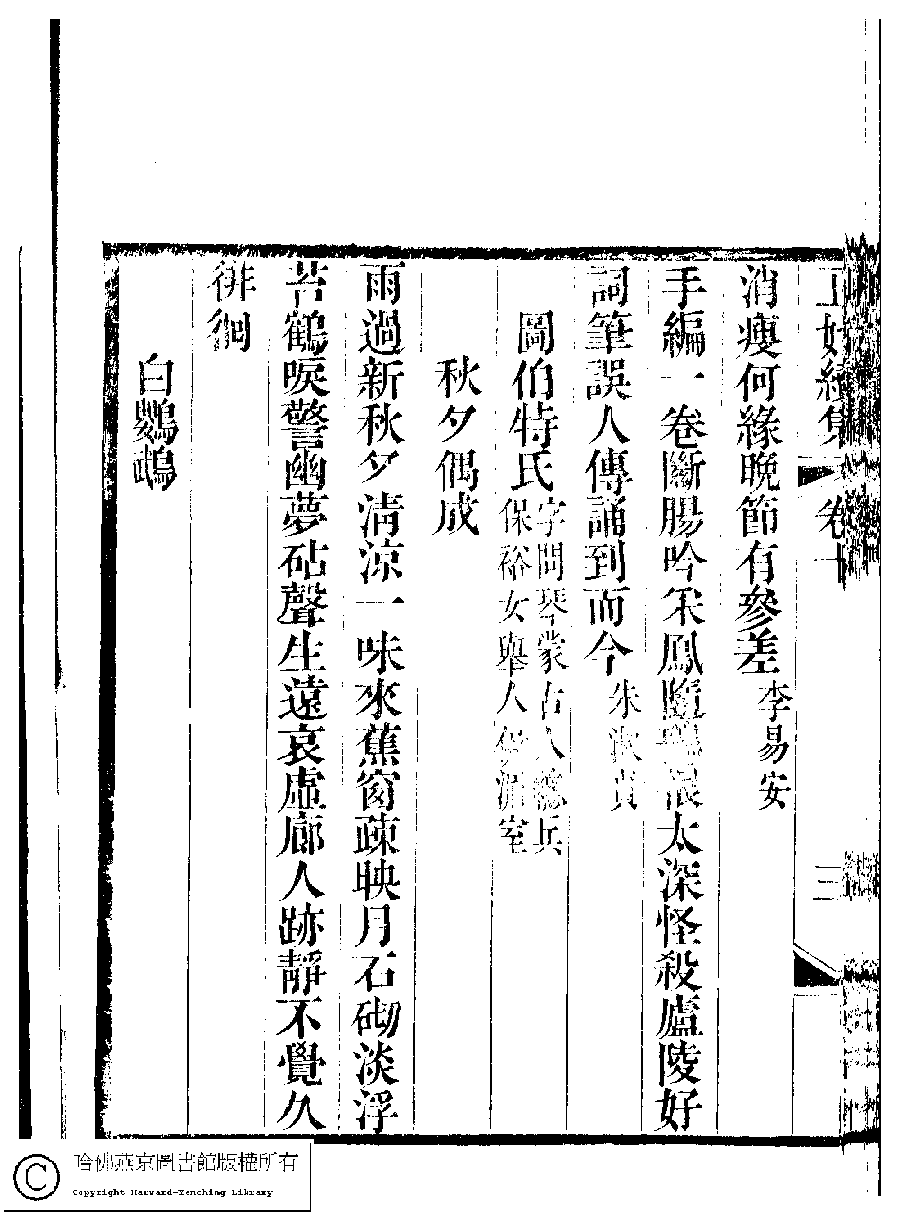 正始續集 卷十 三
消瘦何緣晚節有參差 李易安
手編一卷斷腸吟采鳳隨鴉恨太深怪殺廬陵好
詞筆誤人傳誦到而今 朱淑貞
圖伯特氏 字問琴蒙古人總兵
保裕女舉人室
秋夕偶成
雨過新秋夕清涼一味來蕉窗疎映月石砌淡浮
苔鶴唳警幽夢砧聲生遠哀虛廊人跡靜不覺久
徘徊
白鸚鵡
哈佛燕京圖書館版權所有
Copyright Harvard-Yenching Library